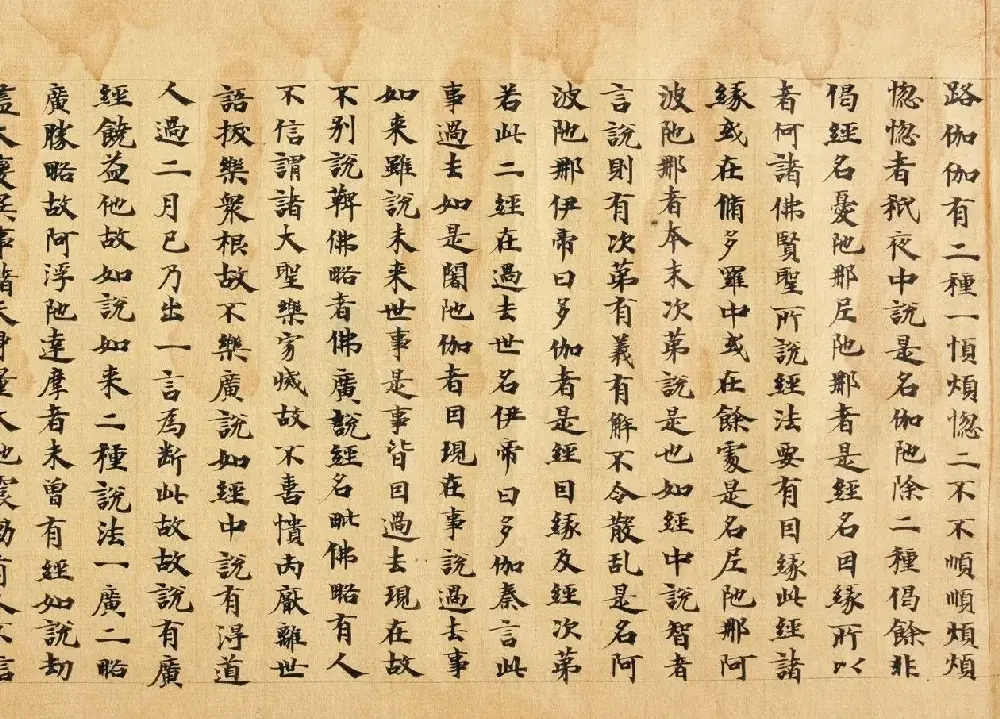 路伽伽有二種一順煩惱二不順順煩煩
惱惱者秖夜中說是名伽陁除二種偈餘非
偈經名憂陁那尼陁那者是經名因緣所以
者何諸佛賢聖所說經法要有因緣此經諸
緣或在脩多羅中或在餘處是名尼陁那阿
波陁那者本末次第說是也如經中說智者
言說則有次第有義有解不令散乱是名阿
波陁那伊帝曰多伽者是經因緣及經次第
若此二經在過去世名伊帝曰多伽秦言此
事過去如是闍陁伽者因現在事說過去事
如来雖說未来世事是事皆因過去現在故
不別說鞞佛略者佛廣說經名毗佛略有人
不信謂諸大聖樂寂滅故不憙憒丙厭離世
語拔樂衆根故不樂廣說如經中說有淂道
人過二月已乃出一言為断此故故說有廣
經饒益他故如說如来二種說法一廣二略
廣勝略故阿浮陁達摩者未曾有經如說劫